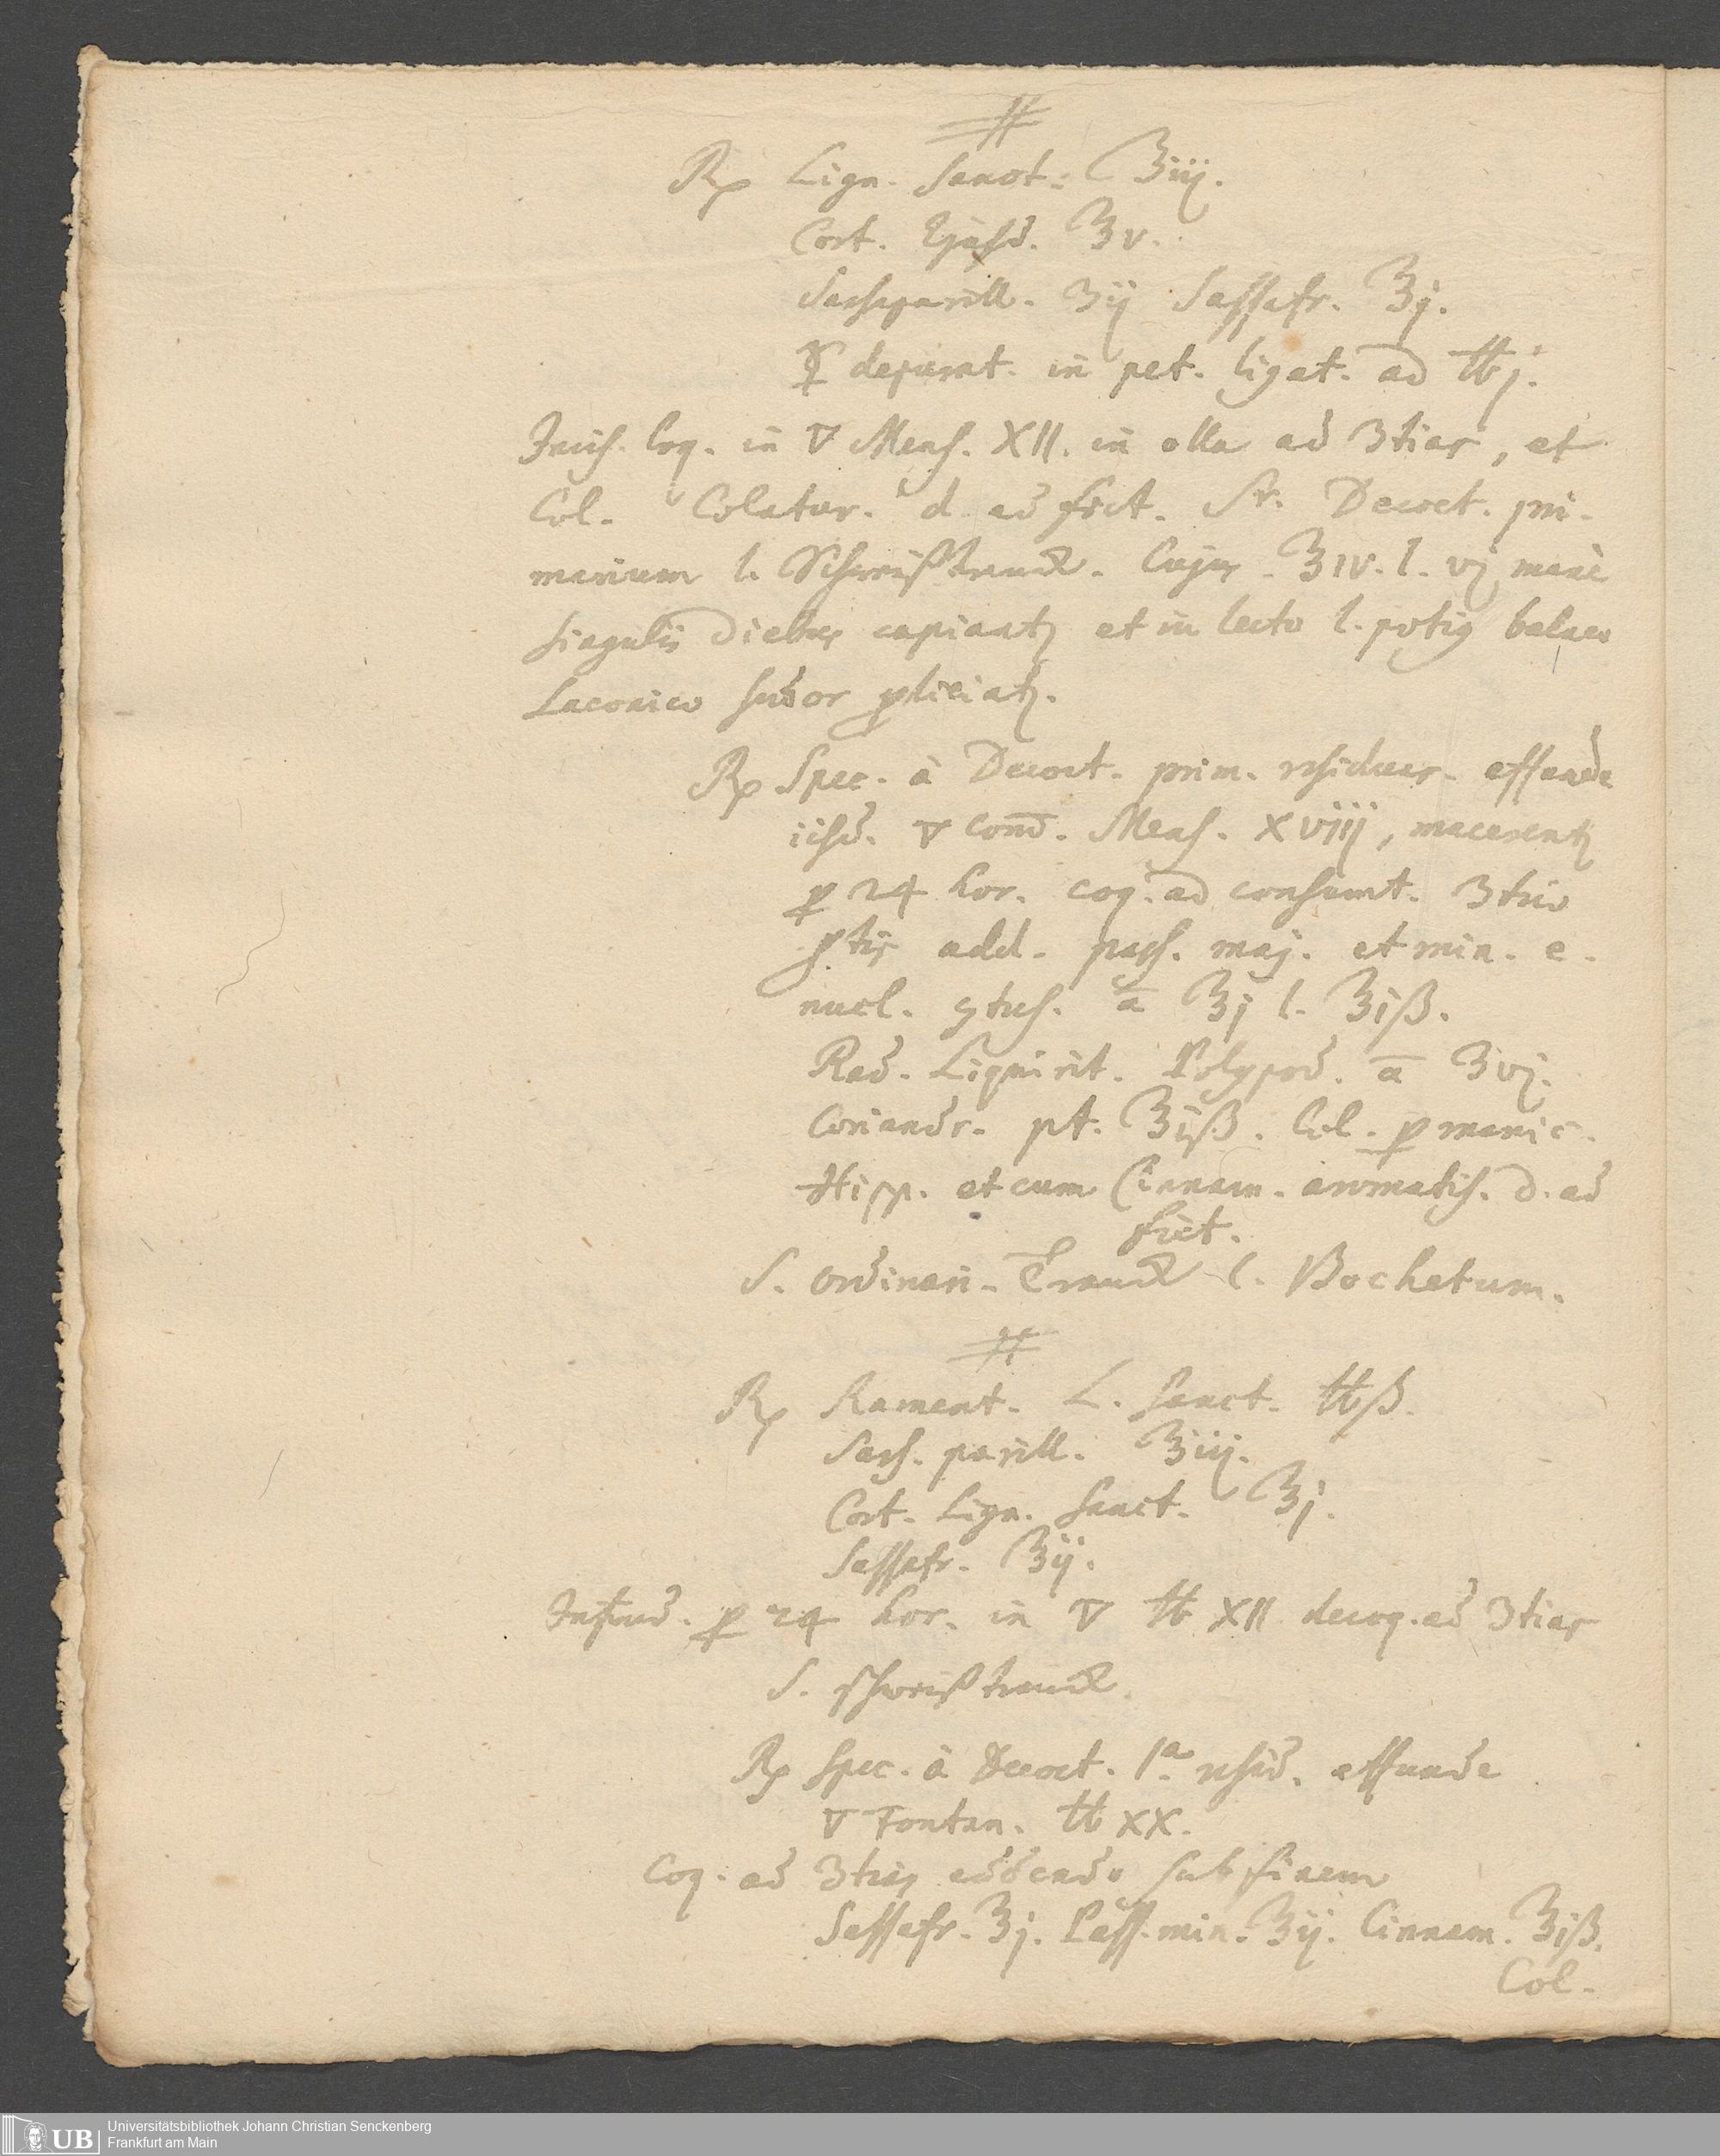 #
℞ Lign. Sanct. ℥iij.
Cort. Ejusd. ℥v.
Sarsaparill. ℥ij Sassafr. ℥j.
☿ depurat. in pet. ligat. ad ℔j.
Incis. Coq. in ▽ Mens. XII. in olla ad 3tias, et
Col. Colatur. d. ad fict. Sr. Decoct. pri-
marium l. Schweißtranck. Cujus ℥IV. l. vj manè
singulis diebus capiantz et in lecto l. potiq balneo
Laconico sudor pliciatz.
℞ Spec. à Decoct. prim. residuas. affunde
iisd. ▽ com̄. Mens. XViij, macerentz
p 24 hor. coq. ad consumt. 3tiae
ptis add. pass. maj. et min. e.
nucl. 9tus. ā ℥j l. ℥iß.
Rad. Liquirit. Polypod. ā ℥vj.
Coriandr. pt. ℥iß. Col. p manic.
Hipp. et cum Cinnam. aromatis. d. ad
fict.
S. Ordinari-Tranck l. Bochetum.
#
℞ Rament. L. Sanct. ℔ß.
Sars. parill. ℥iij.
Cort. Lign. Sanct. ℥j.
Sassafr. ℥ij.
Infund. p 24 hor. in ▽ ℔ XII decoq. ad 3tias
S. Schweißtranck.
℞ Spec. à Decoct. 1ª resid. affunde
▽ Fontan. ℔ XX.
Coq. ad 3tias addendo sub finem
Sassafr. ℥j. Pass. min. ℥ij. Cinnam. ℥iß.
Col.
UB Universitätsbibliothek Johann Christian Senckenberg
Frankfurt am Main